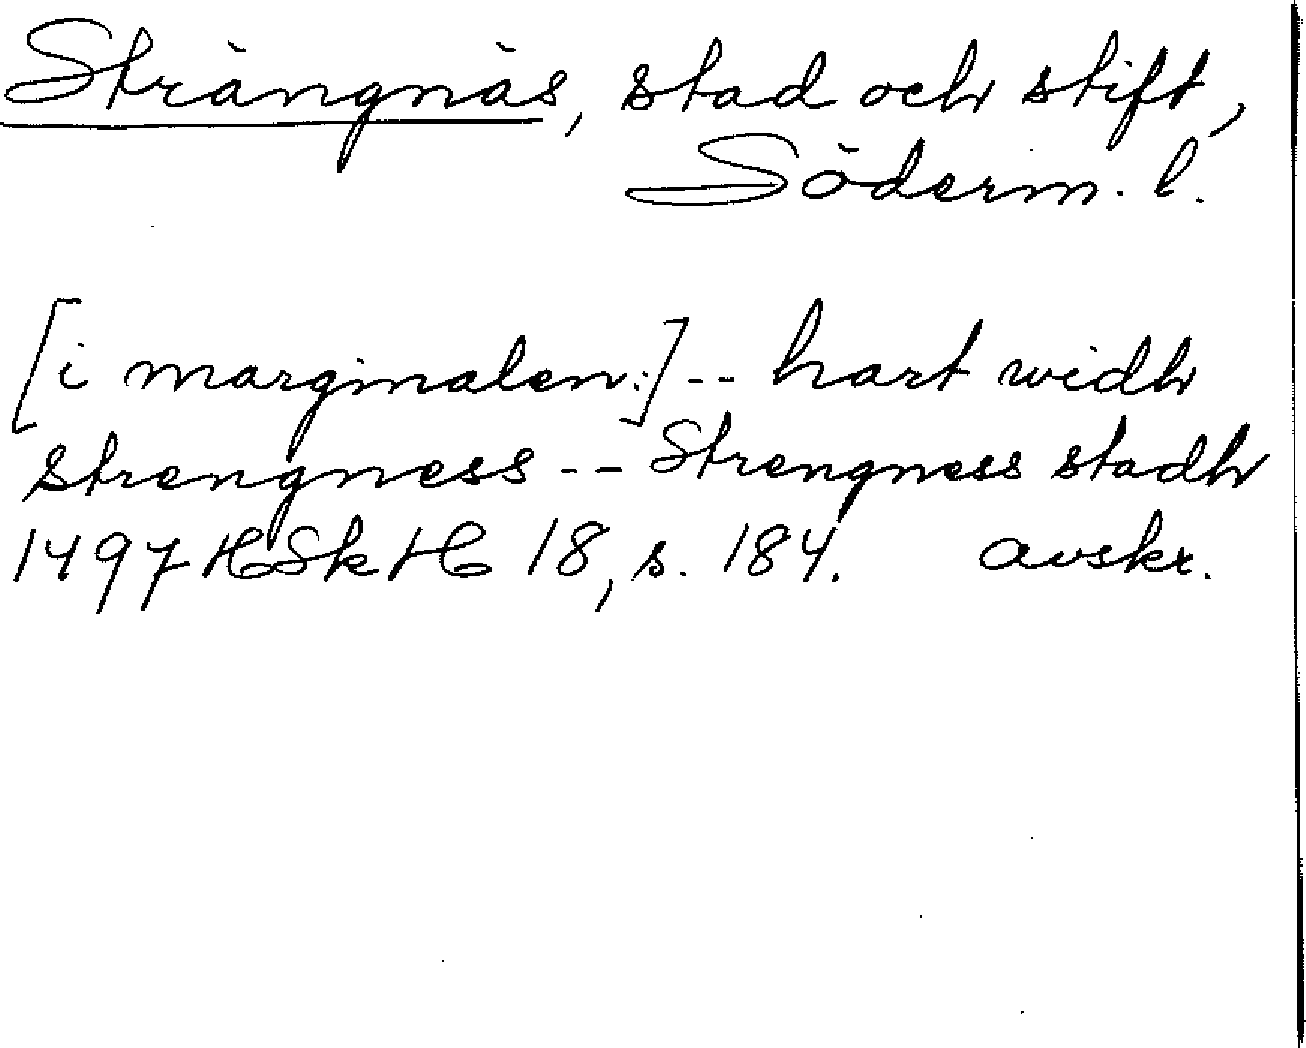 Strängnäs, stad och stift,
Söderm. l.
[i marginalen:] -- hart widh
strengness -- Strengness stadh
1497 HSkH 18, s. 184. avskr.